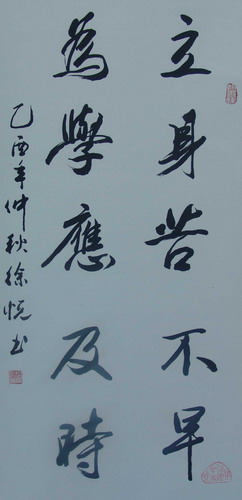 立身苦不早
為學應及時
乙酉年仲秋徐悅书